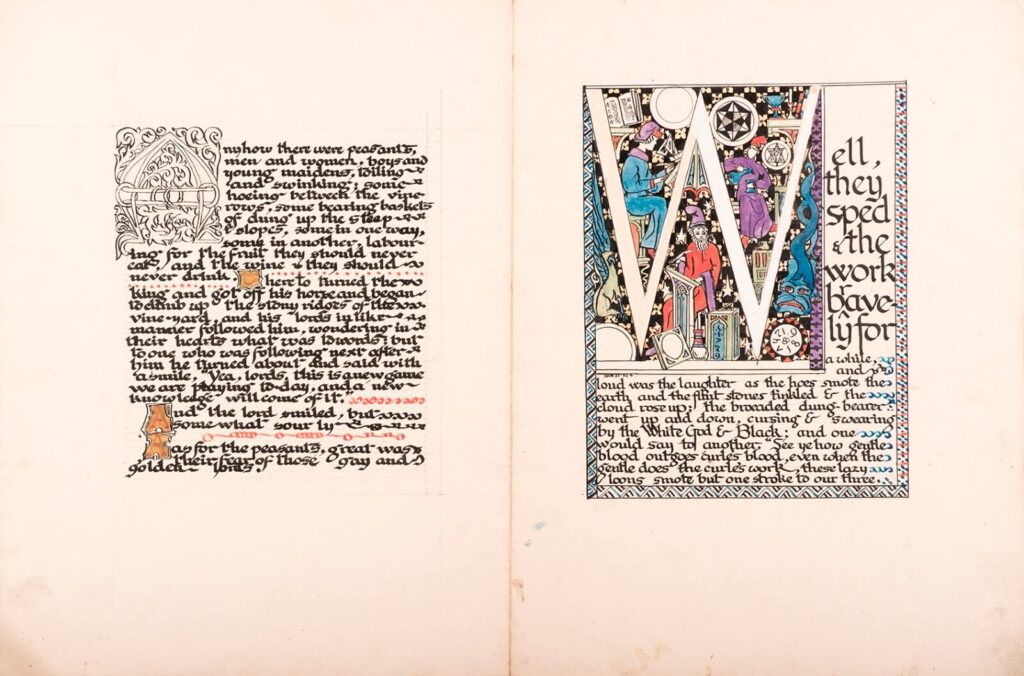 Anyhow there were peasants,
men and women, boys and
young maidens, toiling
and swinking; some
hoeing between the vine
rows, some bearing baskets
of dung up the steep
slopes, some in one way,
some in another, labour-
ing for the fruit they should never
eat, and the wine they should
never drink. Thereto turned the
king and got off his horse and began
to climb up the stony ridges of the
vine-yard, and his lords in like
manner followed him, wondering in
their hearts what was towards; but
to one who was following next after
him he turned about and said with
a smile, "Yea, lords, this is a new game
we are playing to-day, and a new
knowledge will come of it."
And the lord smiled, but
somewhat sourly
As for the peasants, great was
their fear of those gay and
golden lords.
Well,
they
sped
& the
work
brave-
ly for
a while,
and
loud was the laughter as the hoes smote the
earth and the flint stones tinkled & the
cloud rose up; the broaded dung-bearer
went up and down, cursing & swearing
by the White God & Black; and one
would say to another, See ye how gentle
blood outgoes curles blood, even when the
gentle does the curle's work, these lazy
loons smote but one stroke to our three.